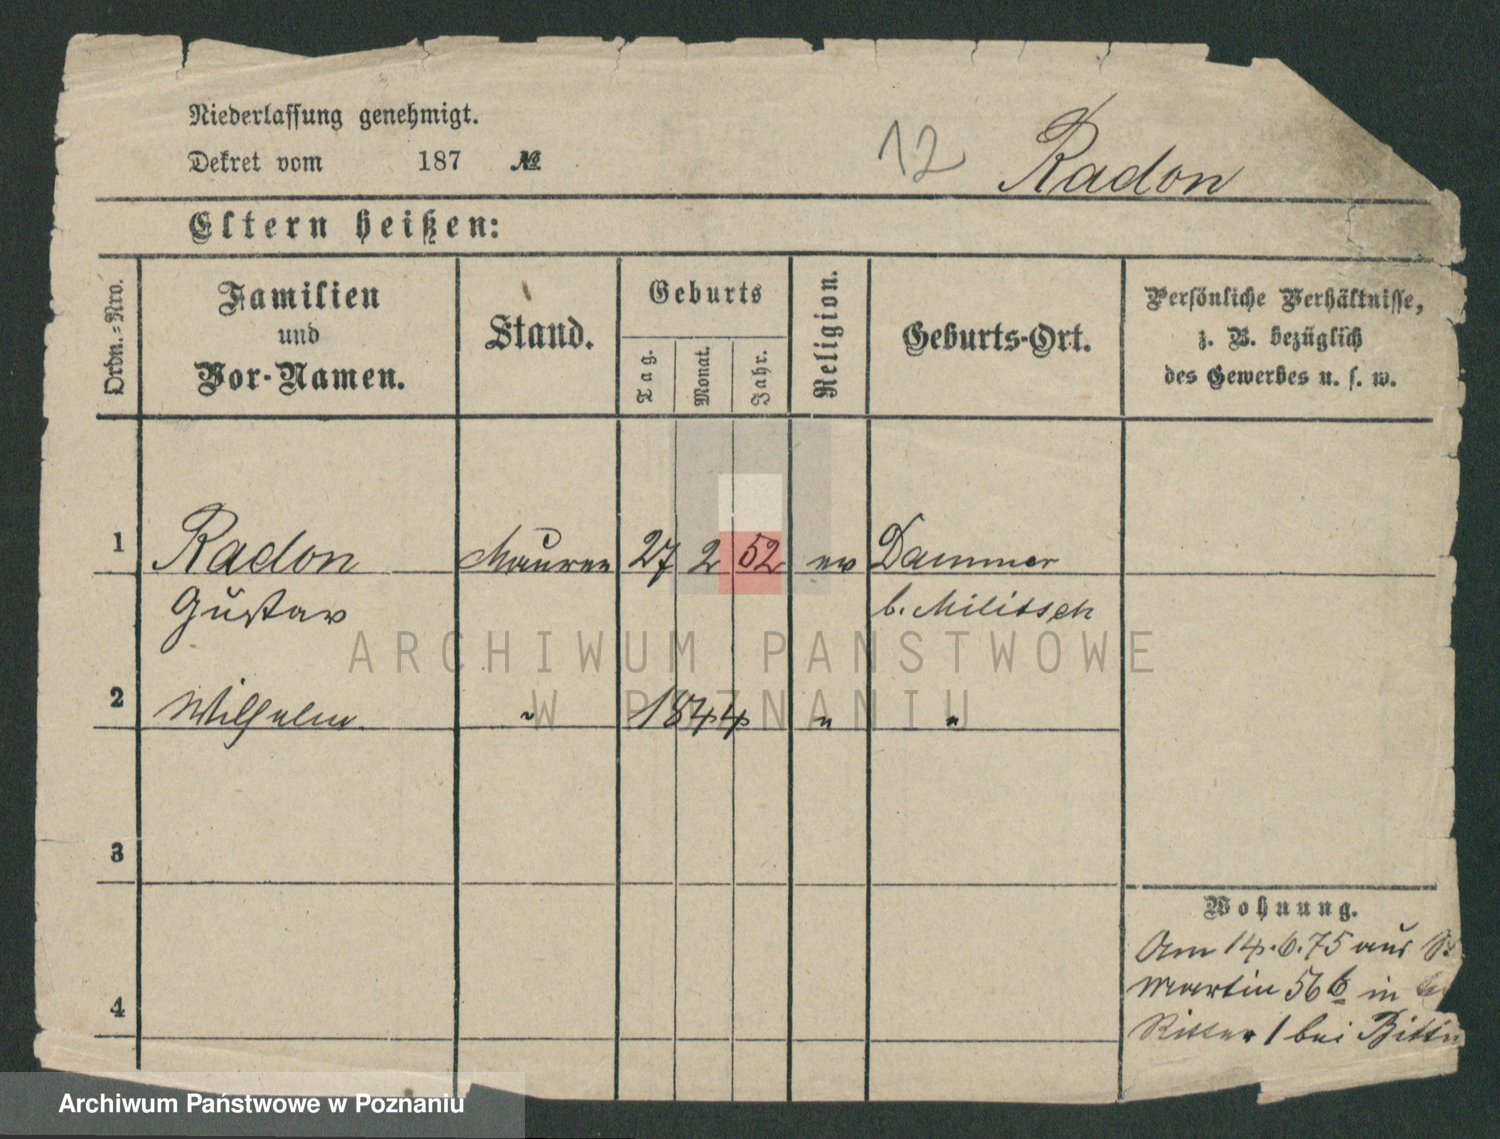 Niederlassung genehmigt.
Dekret vom 187 №
12 Radon
Eltern heißen:
Ordn.-Nro.
Familien und Vor-Namen.
Stand.
Geburts
Tag.
Monat.
Jahr.
Religion.
Geburts-Ort.
Persönliche Verhältnisse,
z. B. bezüglich
des Gewerbes u. s. w.
1 Radon Maurer 27 2 52 ev Dammer
Gustav b. Militsch
ARCHIWUM PAŃSTWOWE
W POZNANIU
2 Wilhelm " 1844 " "
3
Wohnung.
Am 14.6.75 aus St.
Martin 56b in
4
Ritter 1 bei
Archiwum Państwowe w Poznaniu